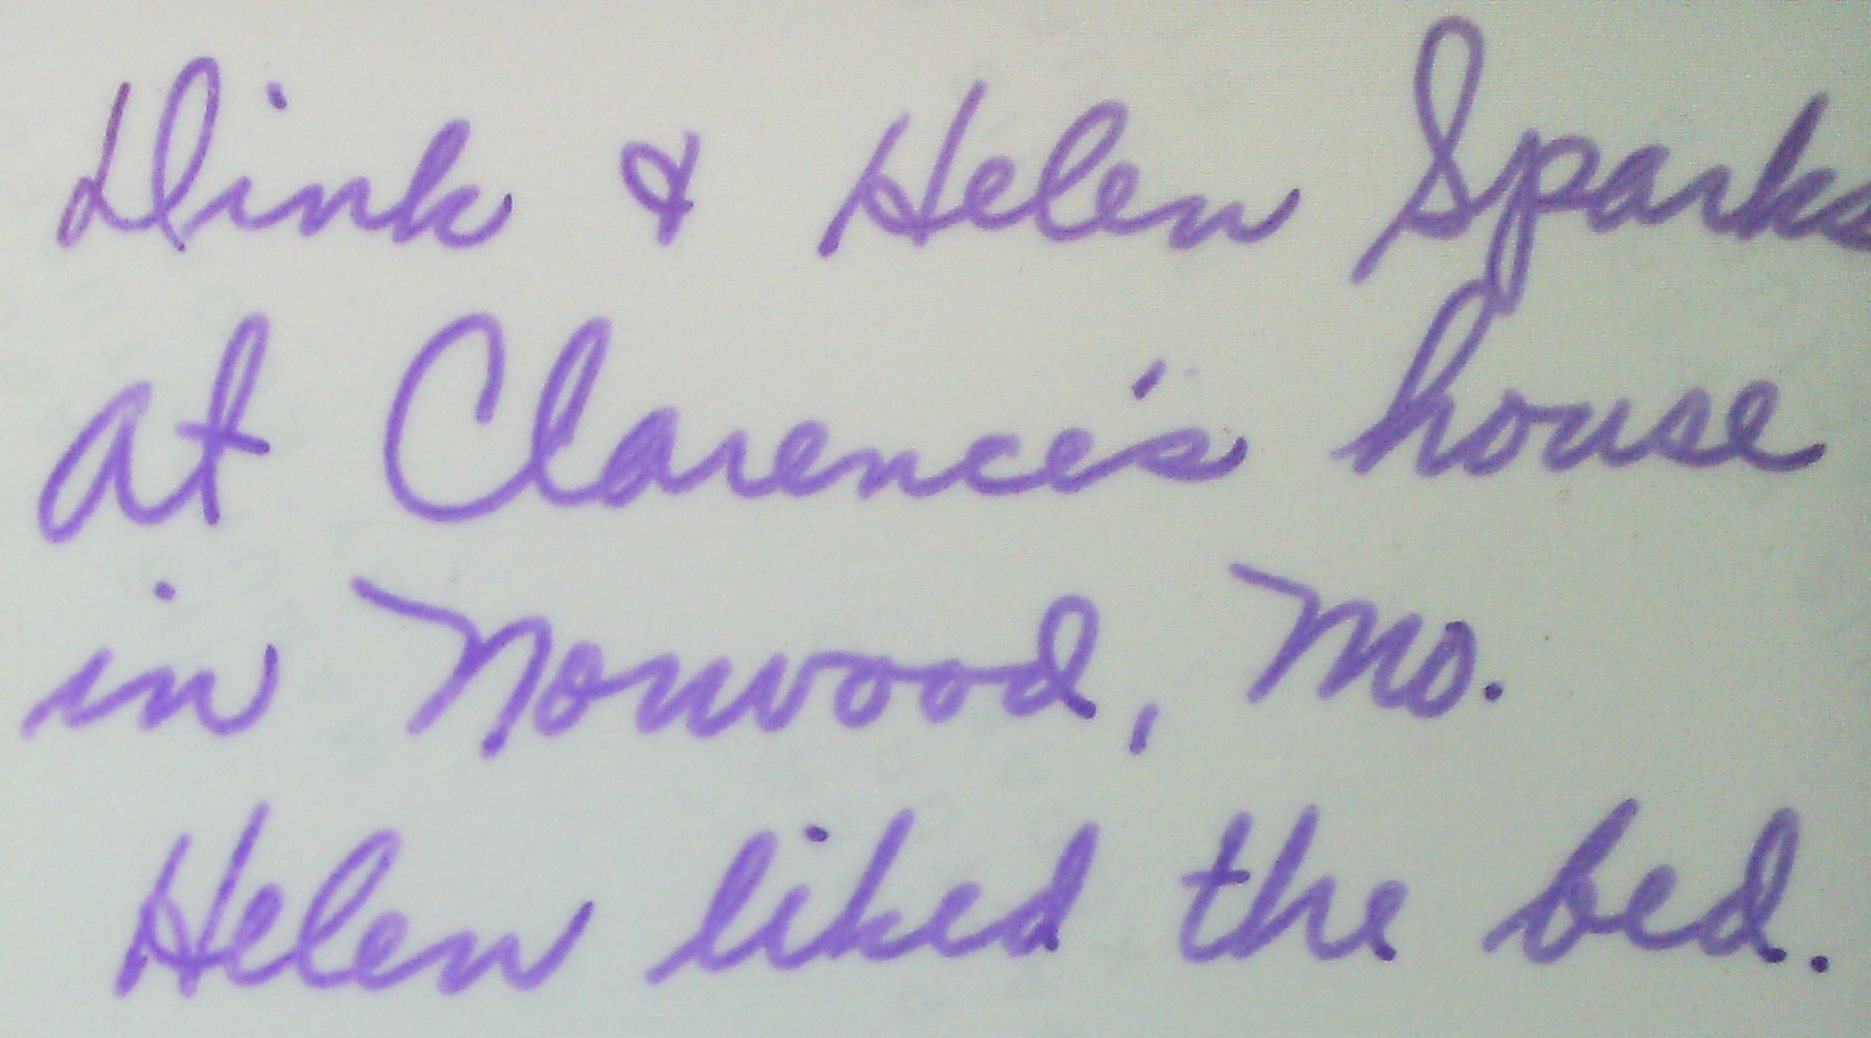 Dink & Helen Sparks
at Clarence's house
in Norwood, Mo.
Helen liked the bed.